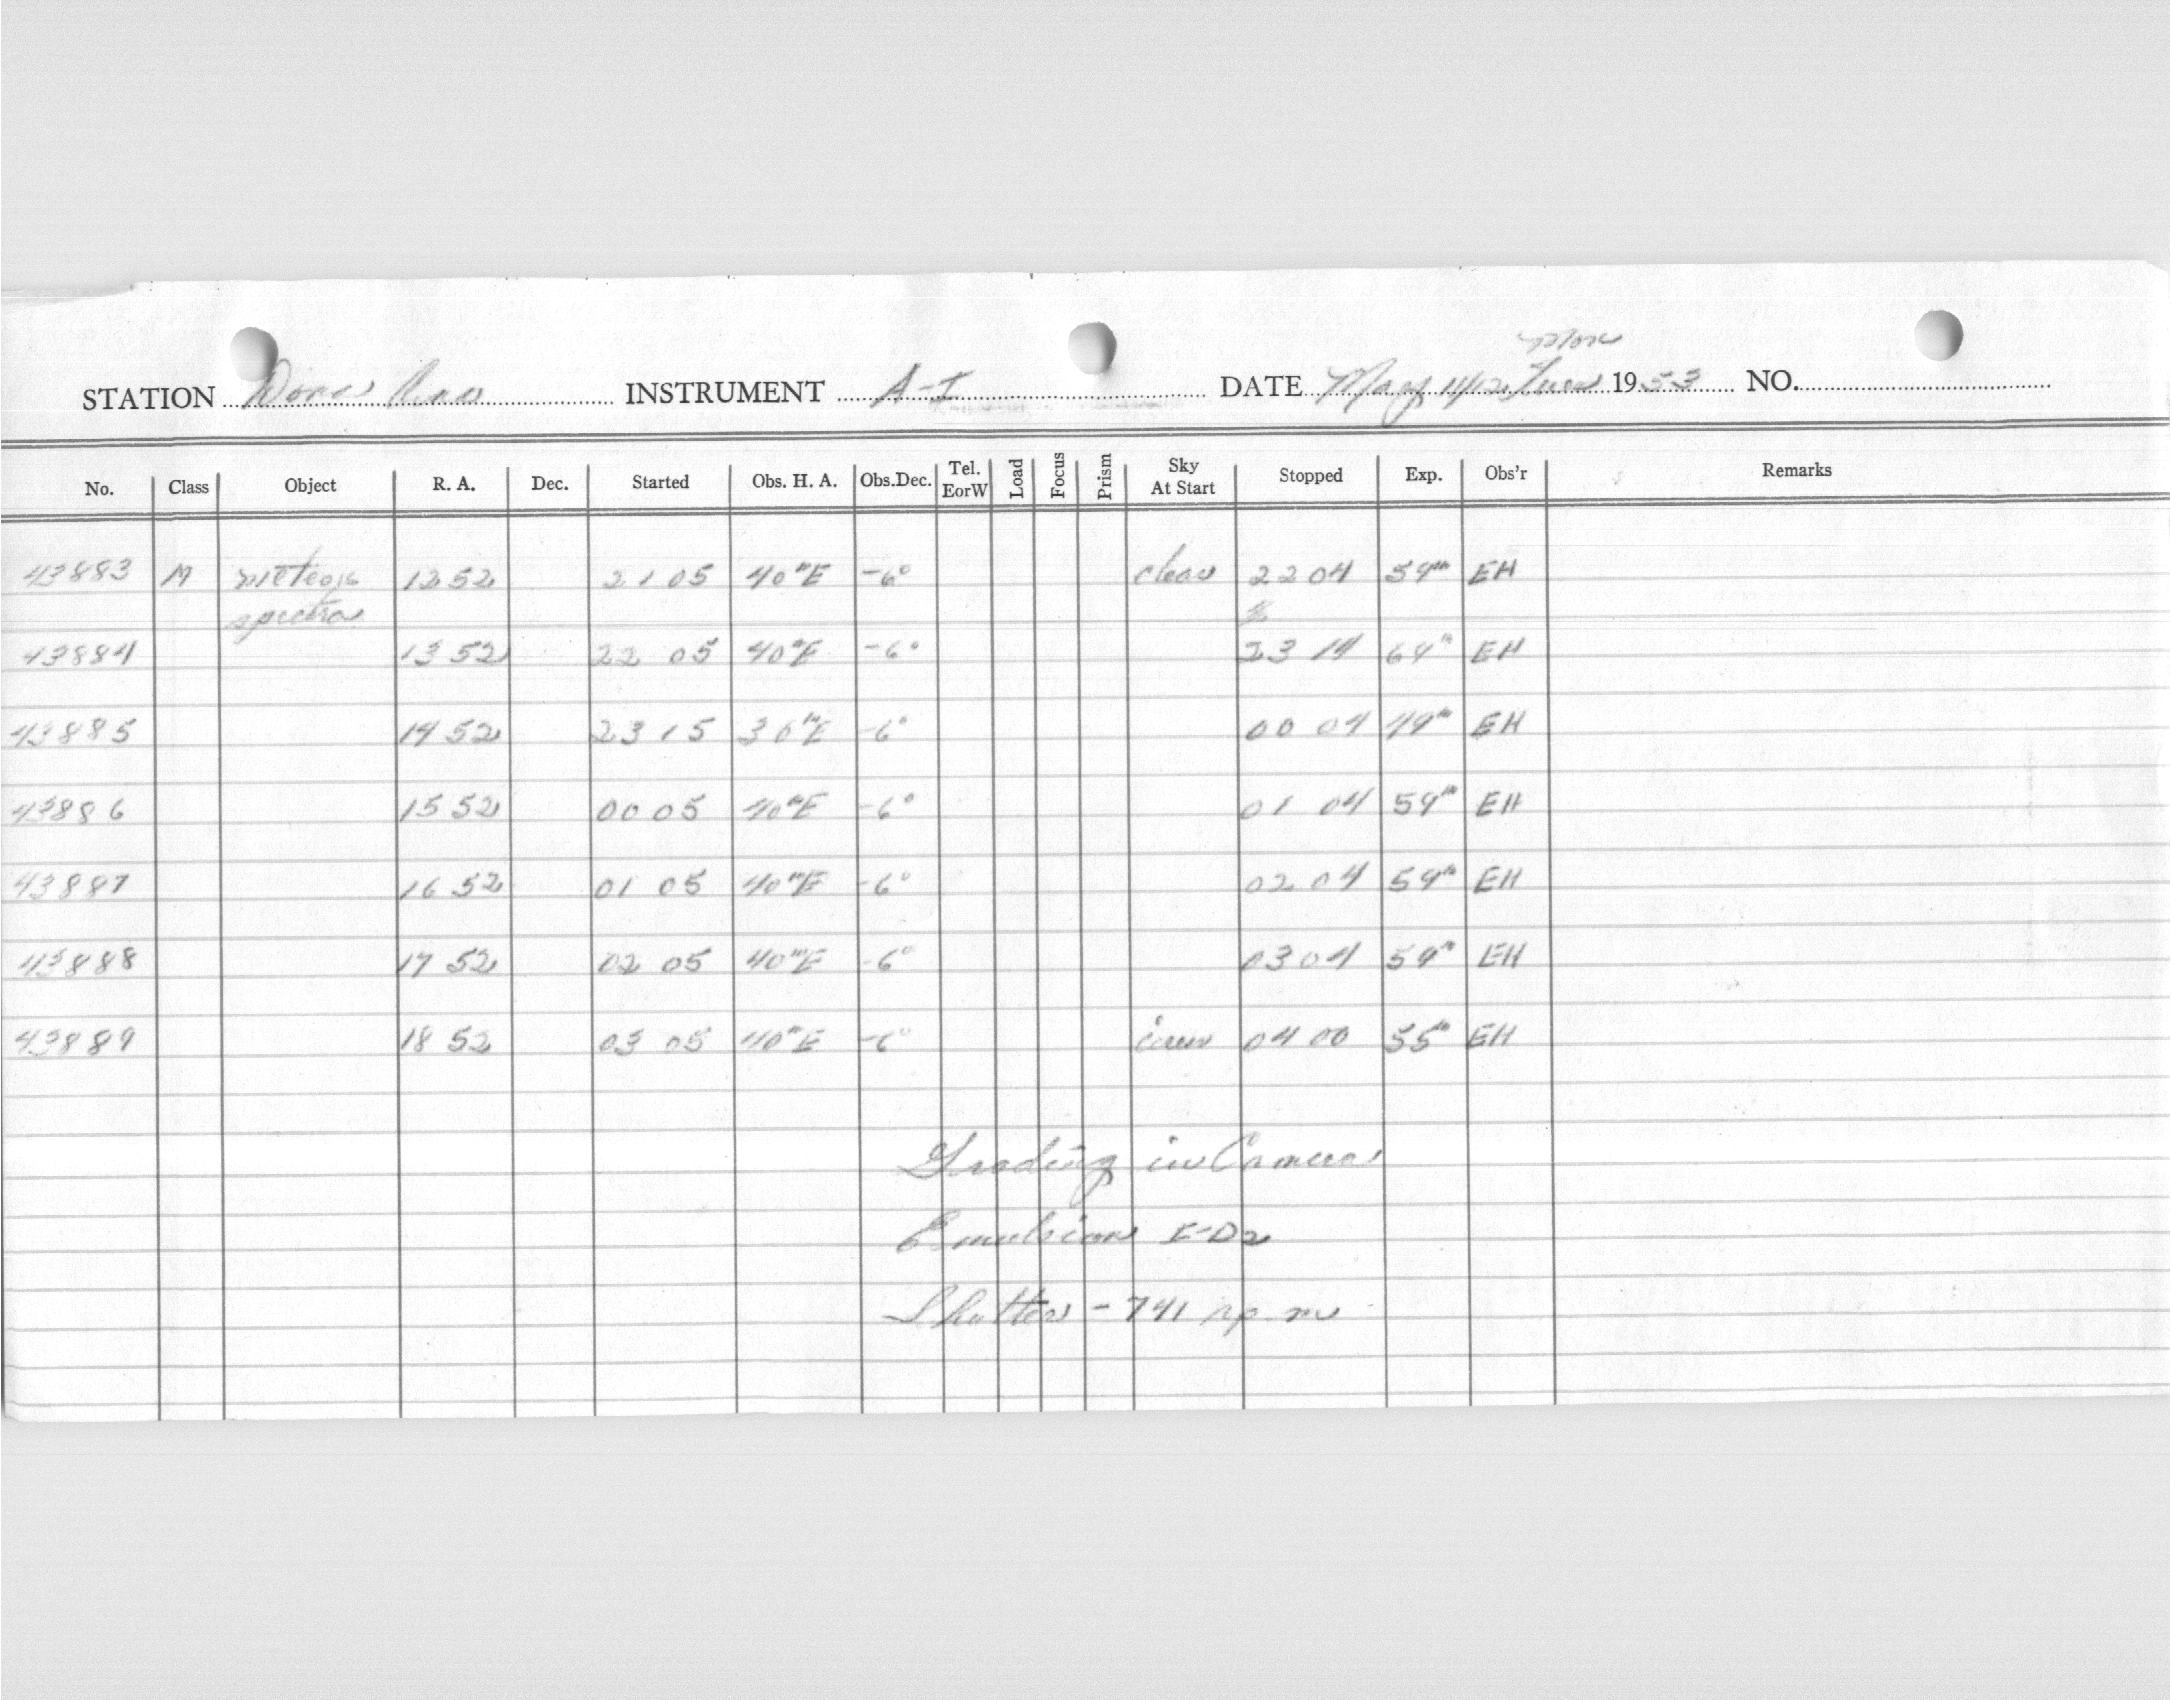 Mon
STATION Dona Ana INSTRUMENT A-I DATE May 11/12 Tues 1953 NO.
No. Class Object R. A. Dec. Started Obs. H. A. Obs.Dec. Tel. EorW Load Focus Prism Sky At Start Stopped Exp. Obs'r Remarks
43883 M meteors 1252 21 05 40ᵐE -6° clear 22 04 59ᵐ EH
spectra
43884 13 52 22 05 40ᵐE -6° 23 14 64ᵐ EH
43885 14 52 23 15 30ᵐE -6° 00 04 49ᵐ EH
43886 15 52 00 05 40ᵐE -6° 01 04 59ᵐ EH
43887 16 52 01 05 40ᵐE -6° 02 04 59ᵐ EH
43888 17 52 02 05 40ᵐE -6° 03 04 59ᵐ EH
43889 18 52 03 05 40ᵐE -6° 04 00 55ᵐ EH
in Camera
Emulsion I-D2
Shutter - 741 r.p.m